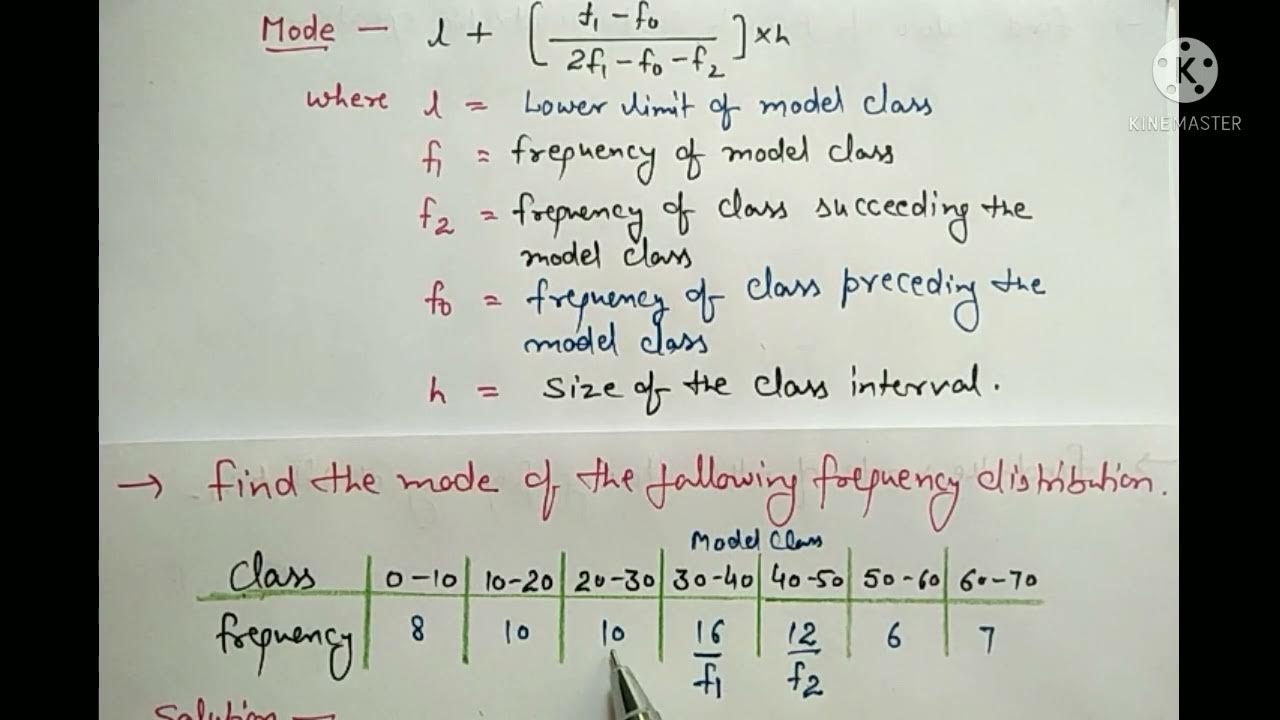 Mode - l + [ f1 - f0 / 2f1 - f0 - f2 ] × h
K
KINEMASTER
where l = Lower limit of model class
f1 = frequency of model class
f2 = frequency of class succeeding the
model class
f0 = frequency of class preceding the
model class
h = Size of the class interval.
→ find the mode of the following frequency distribution.
Model Class
Class 0-10 10-20 20-30 30-40 40-50 50-60 60-70
frequency 8 10 10 16 12 6 7
f1 f2
Solution -